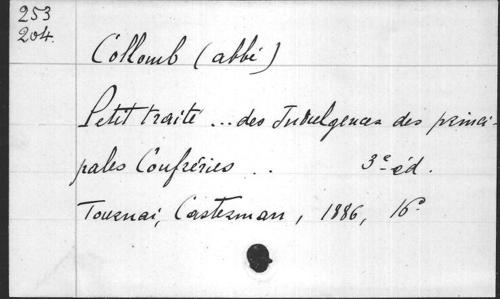 253
204.
Collomb (abbé)
Petit traité ... des Indulgences des princi-
pales Confréries .. 3e éd.
Tournai, Casterman, 1886, 16°